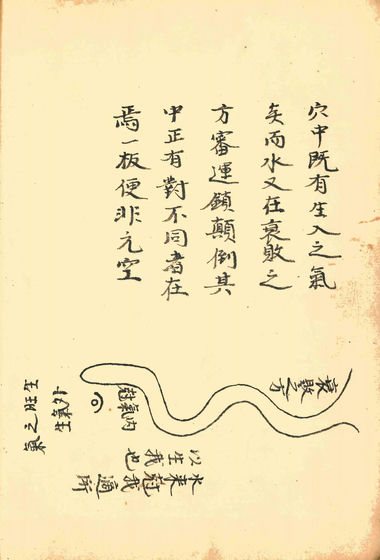 穴中既有生入之氣
矣而水又在衰敗之
方審運鎖顛倒其
中正有對不同者在
焉一板便非元空
衰敗之方
尅氣內
外氣生
生旺之氣
水來尅我適所
以生我也